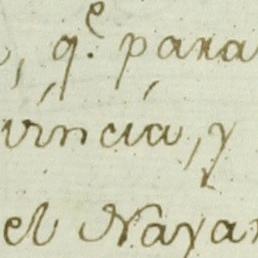 , q.e para
vincia, y
el Nayar